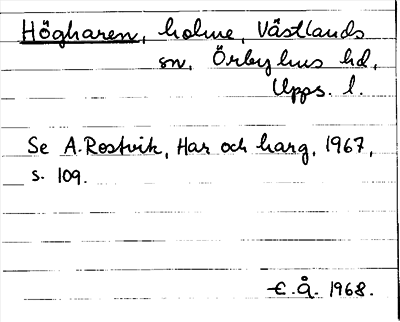 Högharen, holme, Västlands
sn, Örbyhus hd,
Upps. l.
Se A. Rostvik, Har och harg, 1967,
s. 109.
E. Å. 1968.